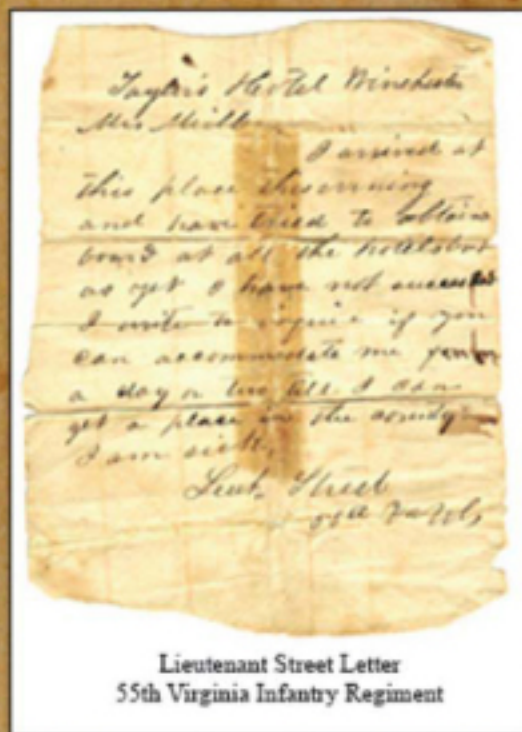 Taylor's Hotel Winchester
Mrs Mill
I arrived at
this place this morning
and have tried to obtain
board at all the hotels but
as yet I have not succeeded
I write to inquire if you
can accommodate me
a day or two till I can
get a place in the county
I am sick.
Lieut. Street
Lieutenant Street Letter
55th Virginia Infantry Regiment